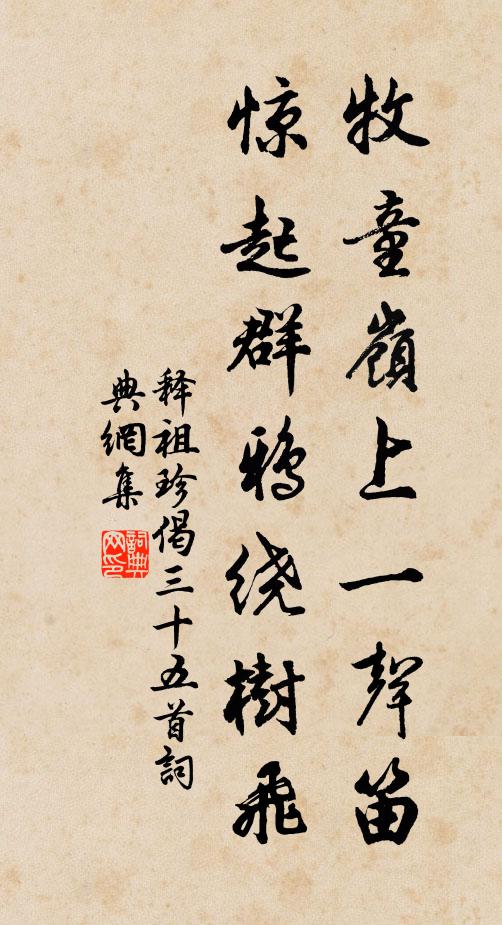 牧童嶺上一聲笛
惊起群鴉绕樹飛
释祖珍偈三十五首詞
典網集
詞典
网印